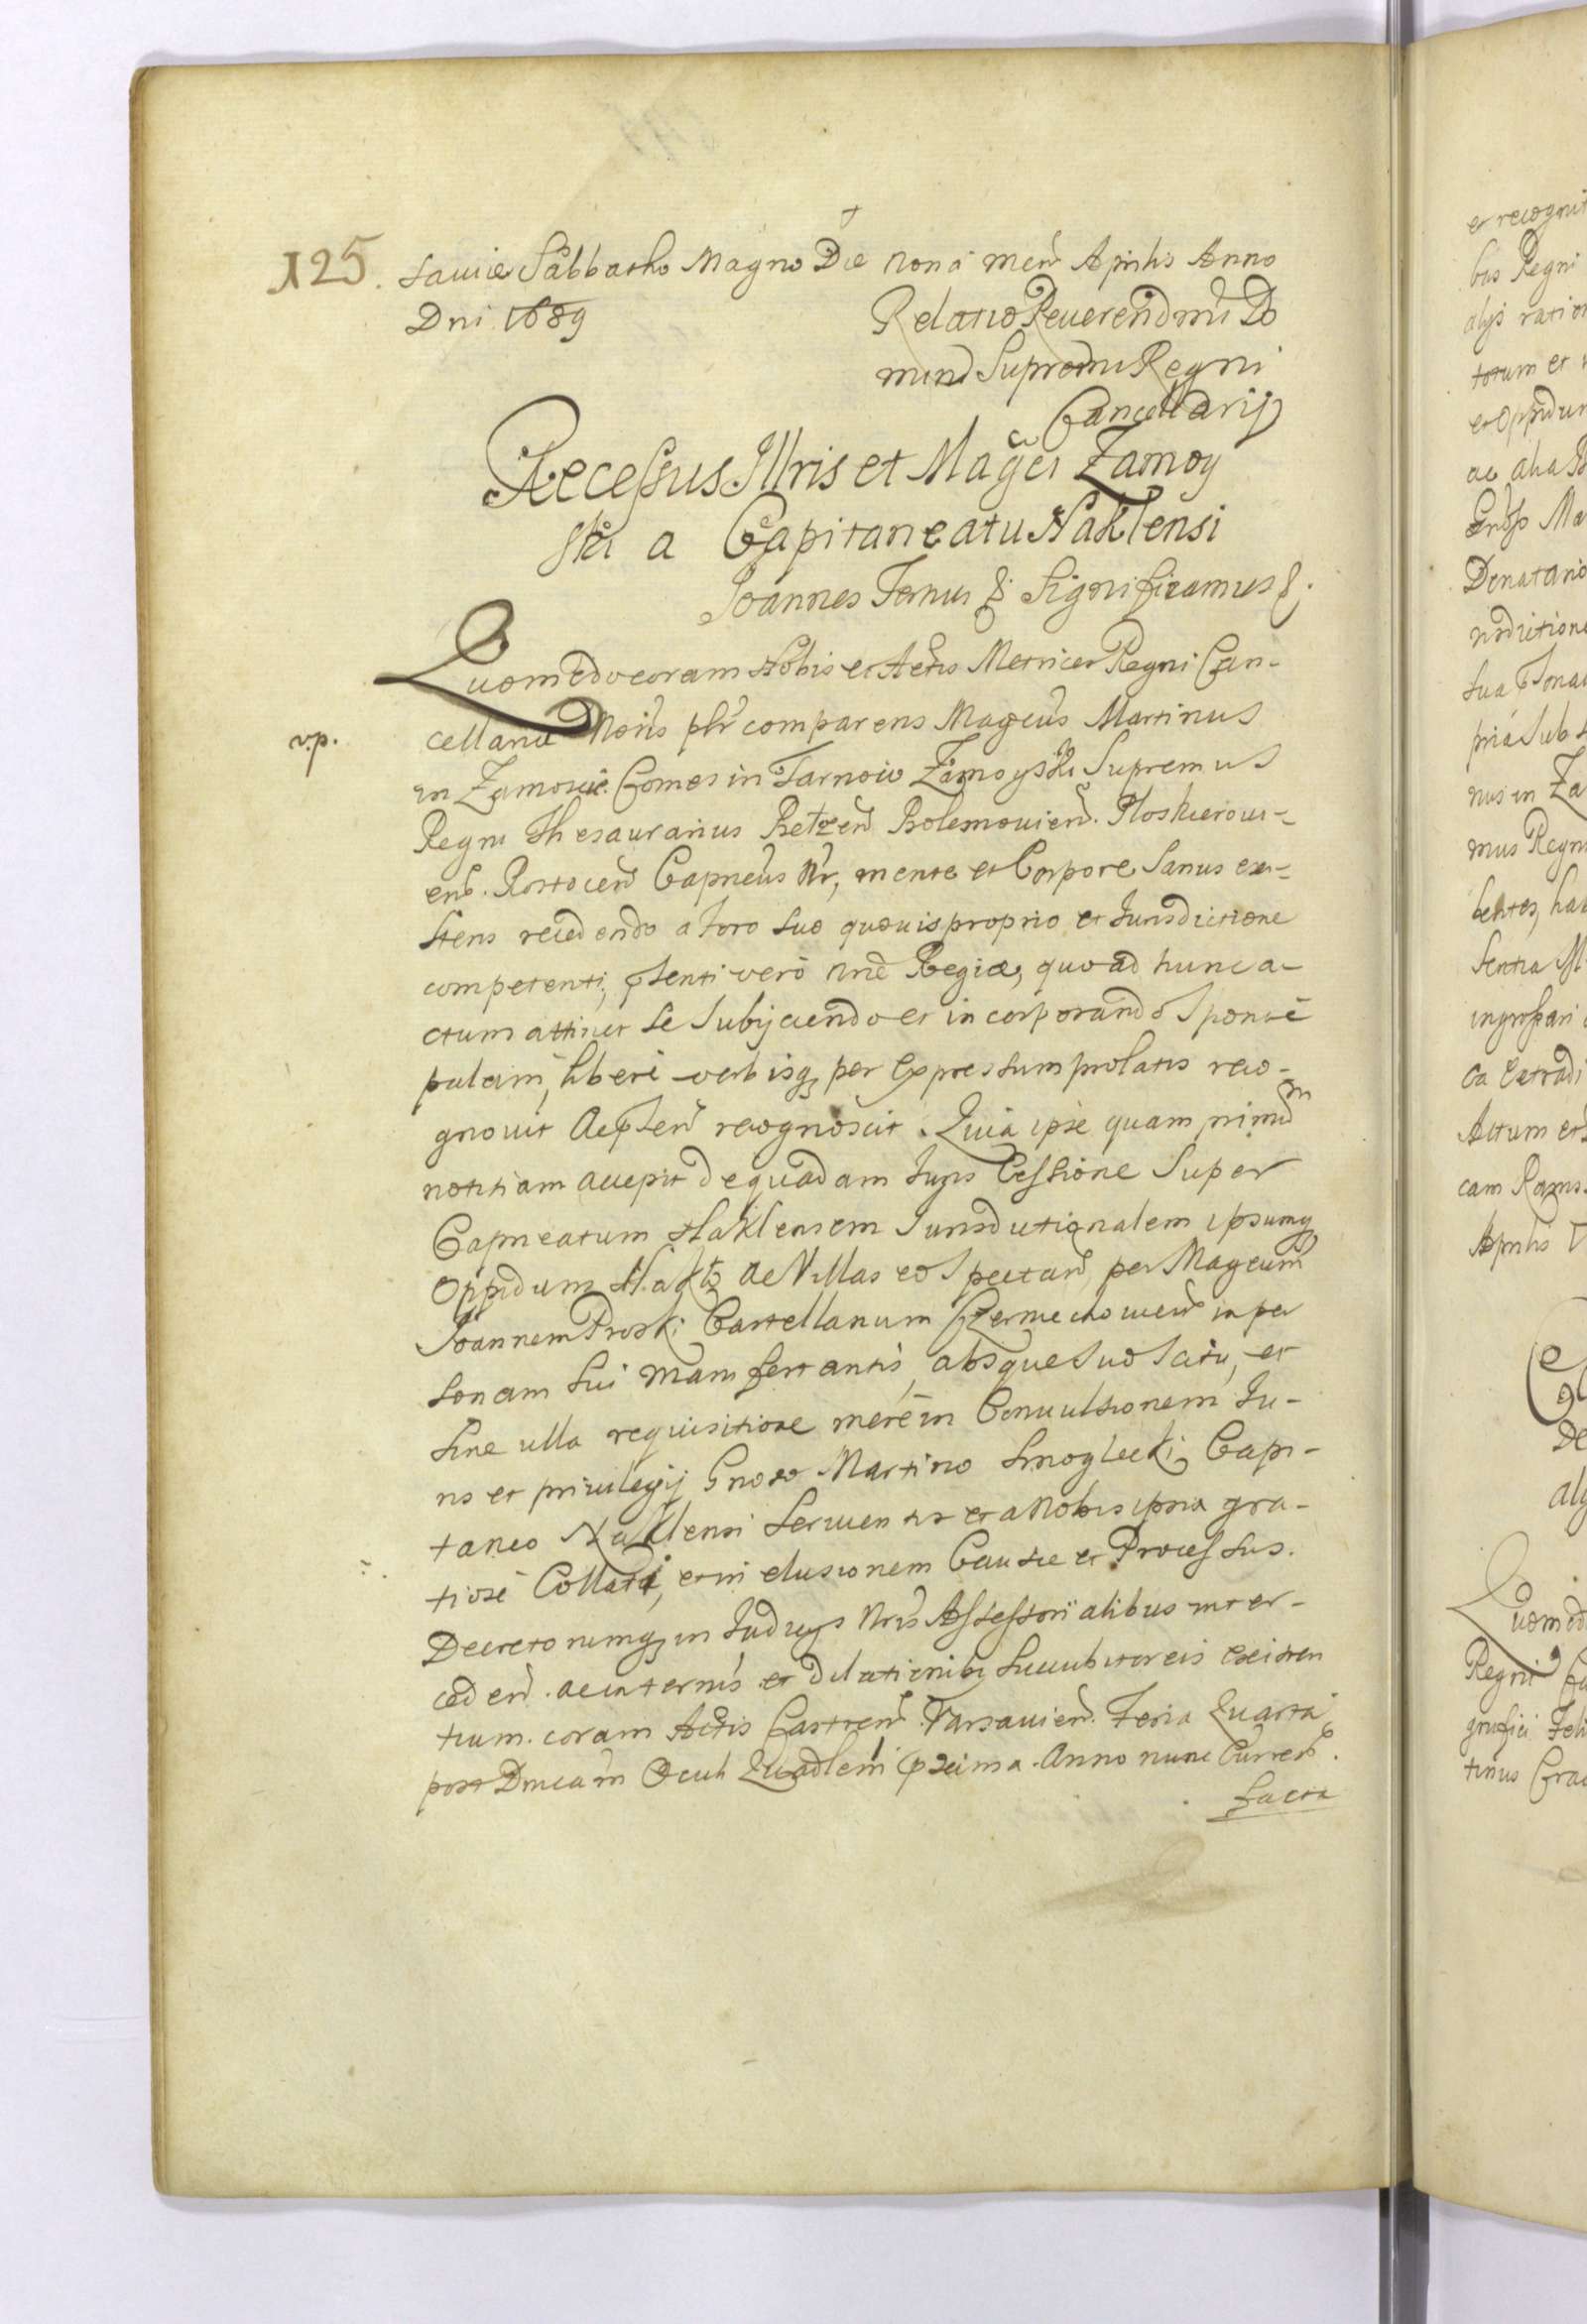 125. sauiae Sabbatho Magno Die nonâ Men Aprilis Anno
Dni 1689 Relatio Reuerendmi Do
mini Supremi Regni
Cancellarij
Recessus Illris et Magci Zamoy
ski a Capitaneatu Naklensi
Joannes Tertius &. Significamus &.
Quomodo coram Nobis et Actis Metrices Regni Can-
v.p. cellariae Maioris plr comparens Magcus Martinus
in Zamoscie Comes in Tarnow Zamoyski Supremus
Regni Thesaurarius Betzen Bolemouien. Ploskierow-
en. Rostocen Capneus Nr, mente et Corpore Sanus exi-
stens recedendo a foro suo quouis proprio et Jurisdictione
competenti, pnti vero Nrae Regiae, quoad hunc a-
ctum attinet se Subijciendo et incorporando Sponte
palam, libere verbisq per Expressum prolatis reco-
gnouit Acpnter recognoscit. Quia ipse quam primum
notitiam accepit de quadam Juris Cessione Super
Capneatum Naklensem Jurisdictionalem ipsumq
Oppidum Nakło ac Villas eo Spectan per Magcum
Joannem Proski Castellanum Czerniechouien in per
sonam Sui manifestantis, absque Suo Scitu, et
Sine ulla requisitione mere in Conuulsionem Ju-
ris et priuilegij Gnoso Martino Smoglecki Capi-
taneo Naklensi Seruientis et a Nobis ipsi gra-
tiose Collati, et in elusionem Causae et Processus.
Decretorumq in Judicijs Nris Assessorialibus inter-
ceden. ac in terminis et dilationibq Succubitoreis existen
tium. coram Actis Castren Varsauien. Feria Quarta
post Dnicam Oculi Quadlem pxima. Anno nunc Curren.
facta